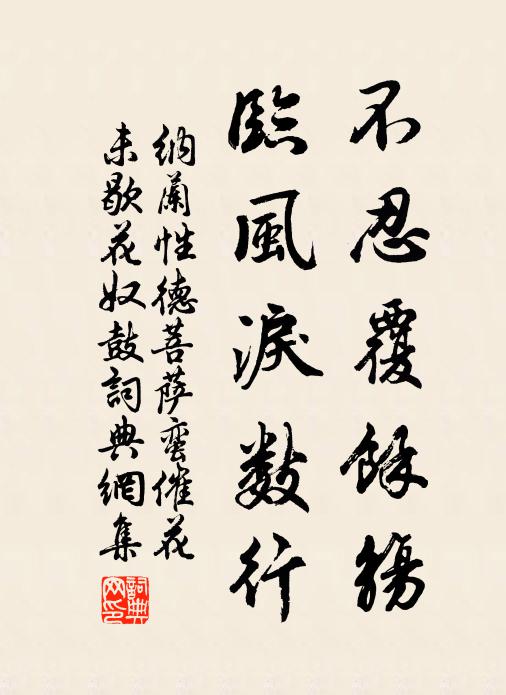 不忍覆餘觴
臨風淚數行
納蘭性德菩薩蠻催花
未歇花奴鼓詞典網集